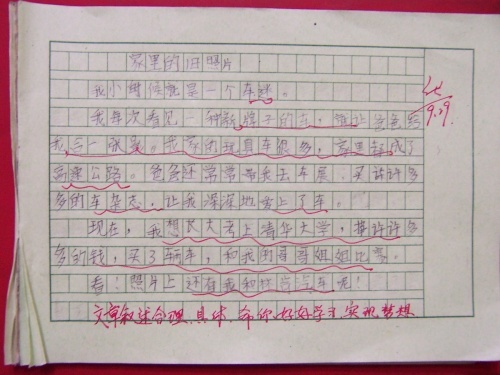 家里的旧照片
我小时候就是一个车迷。
我每次看见一种新牌子的车，
我家的玩具车很多，家里都成了
高速公路。爸爸还常常带我去车展，买许许多
多的车杂志，让我深深地爱上了车。
现在，我想长大考上清华大学，挣许许多
多的钱，买了辆车，和我的哥哥姐姐比赛。
看！照片上还有我和 车呢！
文章叙述合理、具体，希你好好学习，实现梦想
9.29